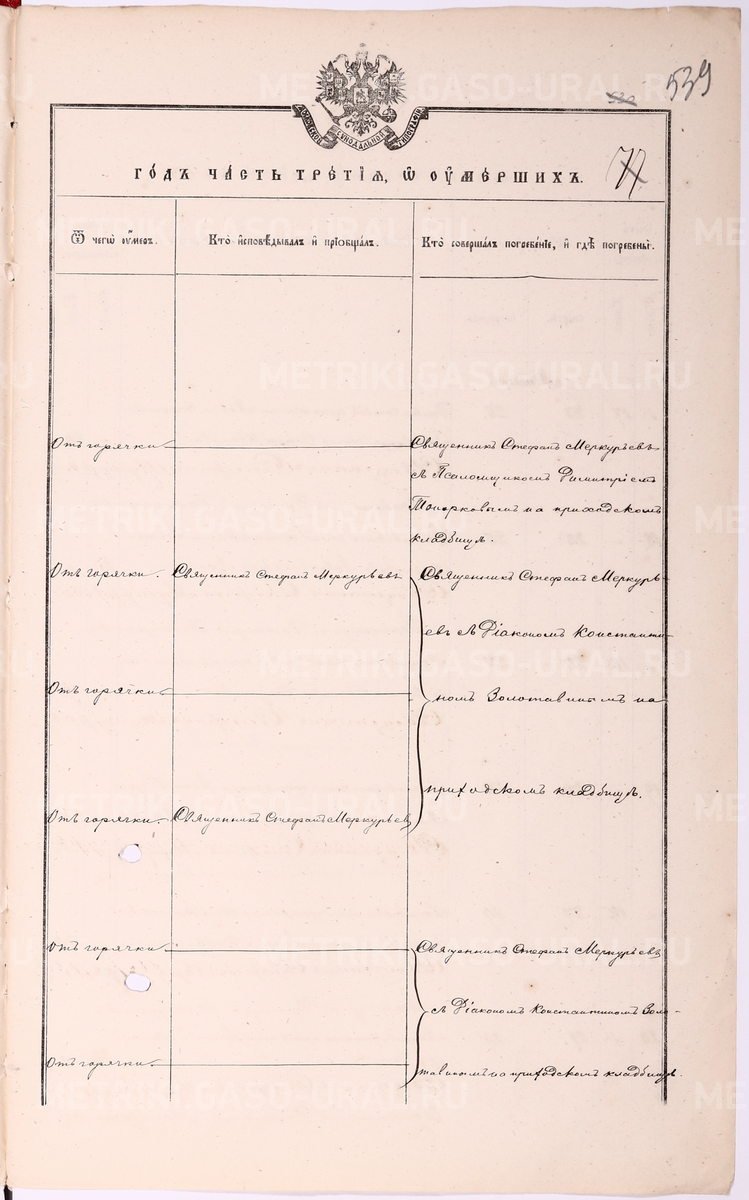 539
МОСКОВСКОЙ СѴНОДАЛЬНОЙ ТИПОГРАФІИ
77.
ГО́ДЪ ЧА́СТЬ ТРЕ́ТІѦ, Ѡ҆ ОУ҆МЕ́РШИХЪ.
Ѿ чегѡ̀ оу҆́меръ.
Кто̀ и҆сповѣ́дывалъ и҆ прїобща́лъ.
Кто̀ соверша́лъ погребе́нїе, и҆ гдѣ̀ погребены̀.
Отъ горячки
Священникъ Стефанъ Меркурьевъ
съ Псаломщикомъ Димитріемъ
Топорковымъ на приходскомъ
кладбищѣ.
Отъ горячки.
Священникъ Стефанъ Меркурьевъ
Священникъ Стефанъ Меркурь-
евъ съ Діакономъ Константи-
номъ Золотавинымъ на
приходскомъ кладбищѣ.
Отъ горячки.
Отъ горячки.
Священникъ Стефанъ Меркурьевъ
Отъ горячки
Священникъ Стефанъ Меркурьевъ
съ Діакономъ Константиномъ Золо-
тавиномъ на приходскомъ кладбищѣ.
Отъ горячки.
METRIKI.GASO-URAL.RU